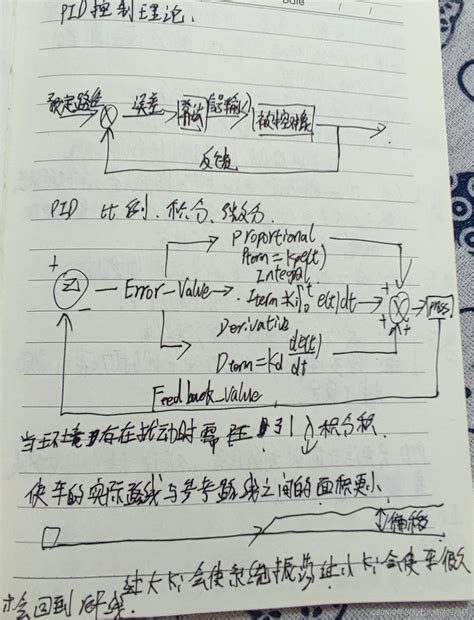 PID控制理论.
Date / /
设定路线 误差 算法 输入 被控对象
反馈
PID 比例、积分、微分.
Proportional
Pterm=Kpe(t)
Integral
+ Σ - Error_Value Iterm=Ki∫₀ᵗe(t)dt + X +
Derivative
Dterm=Kd de(t)/dt +
Feedback_Value
当环境中存在扰动时需要引入积分积.
使车的实际路线与参考路线之间的面积更小
偏移
过大Ki会使系统振荡 过小Ki会使车很久
才会回到路线.